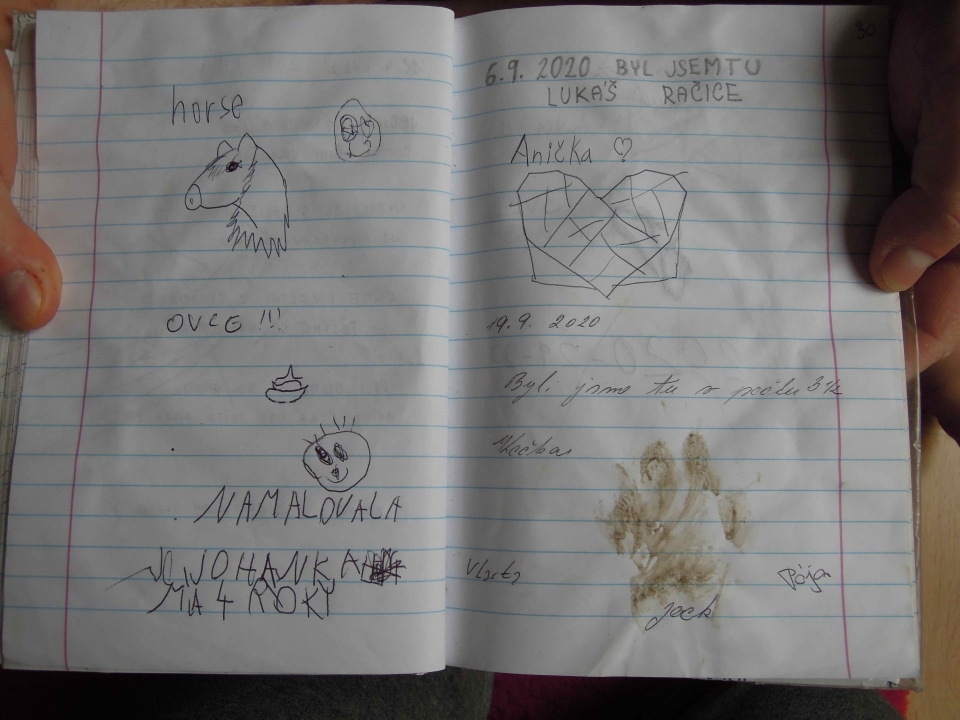 horse
OVCE !!!
NAMALOVALA
JOHANKA
MÁ 4 ROKY
30
6.9. 2020 BYL JSEM TU
LUKÁŠ RAČICE
Anička ♡
19.9. 2020
Byli jsme tu s
Jack
Pája